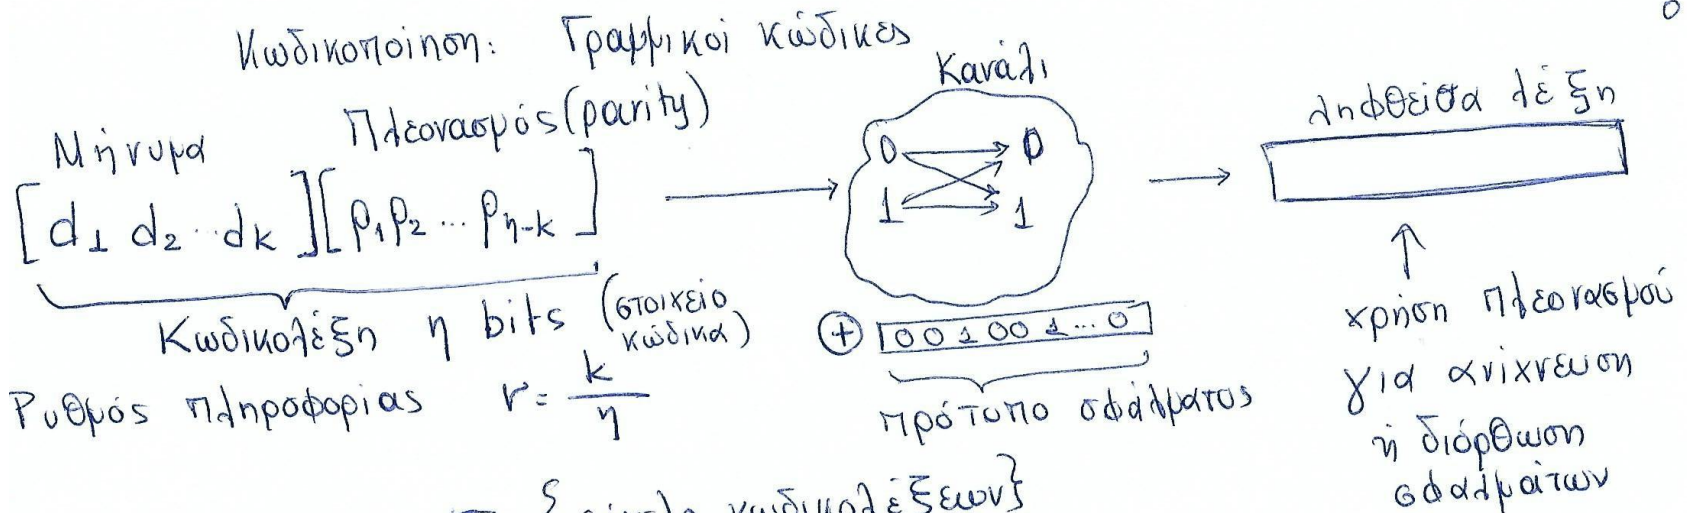 Κωδικοποίηση: Γραμμικοί κώδικες
Μήνυμα
Πλεονασμός (parity)
[d1 d2 .. dk] [p1 p2 ... pn-k]
Κωδικολέξη n bits (στοιχείο κώδικα)
Ρυθμός πληροφορίας r = k/n
Κανάλι
0 0
1 1
+ 0 0 1 0 0 1 ... 0
πρότυπο σφάλματος
ληφθείσα λέξη
χρήση πλεονασμού
για ανίχνευση
ή διόρθωση
σφαλμάτων
κωδικολέξεων}